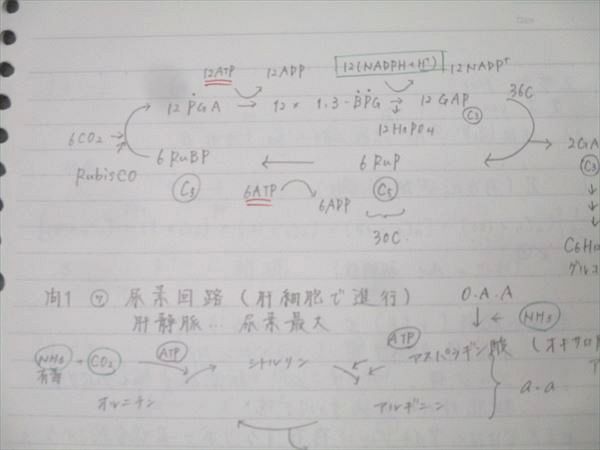 12ATP 12ADP 12(NADPH+H⁺) 12NADP⁺
12 PGA → 12 × 1.3-BPG → 12 GAP 36C
C3
12H3PO4
6CO2 →
6 RuBP ← 6 RuP
RubisCO
2GA
C3
C3 6ATP 6ADP C5
30C
C6H
グルコ
問1 ⑦ 尿素回路(肝細胞で進行) O.A.A
肝静脈… 尿素最大 ← NH3
NH3 + CO2 ATP シトルリン ATP アスパラギン酸 (オキサロ
有毒
a.a
オルニチン アルギニン